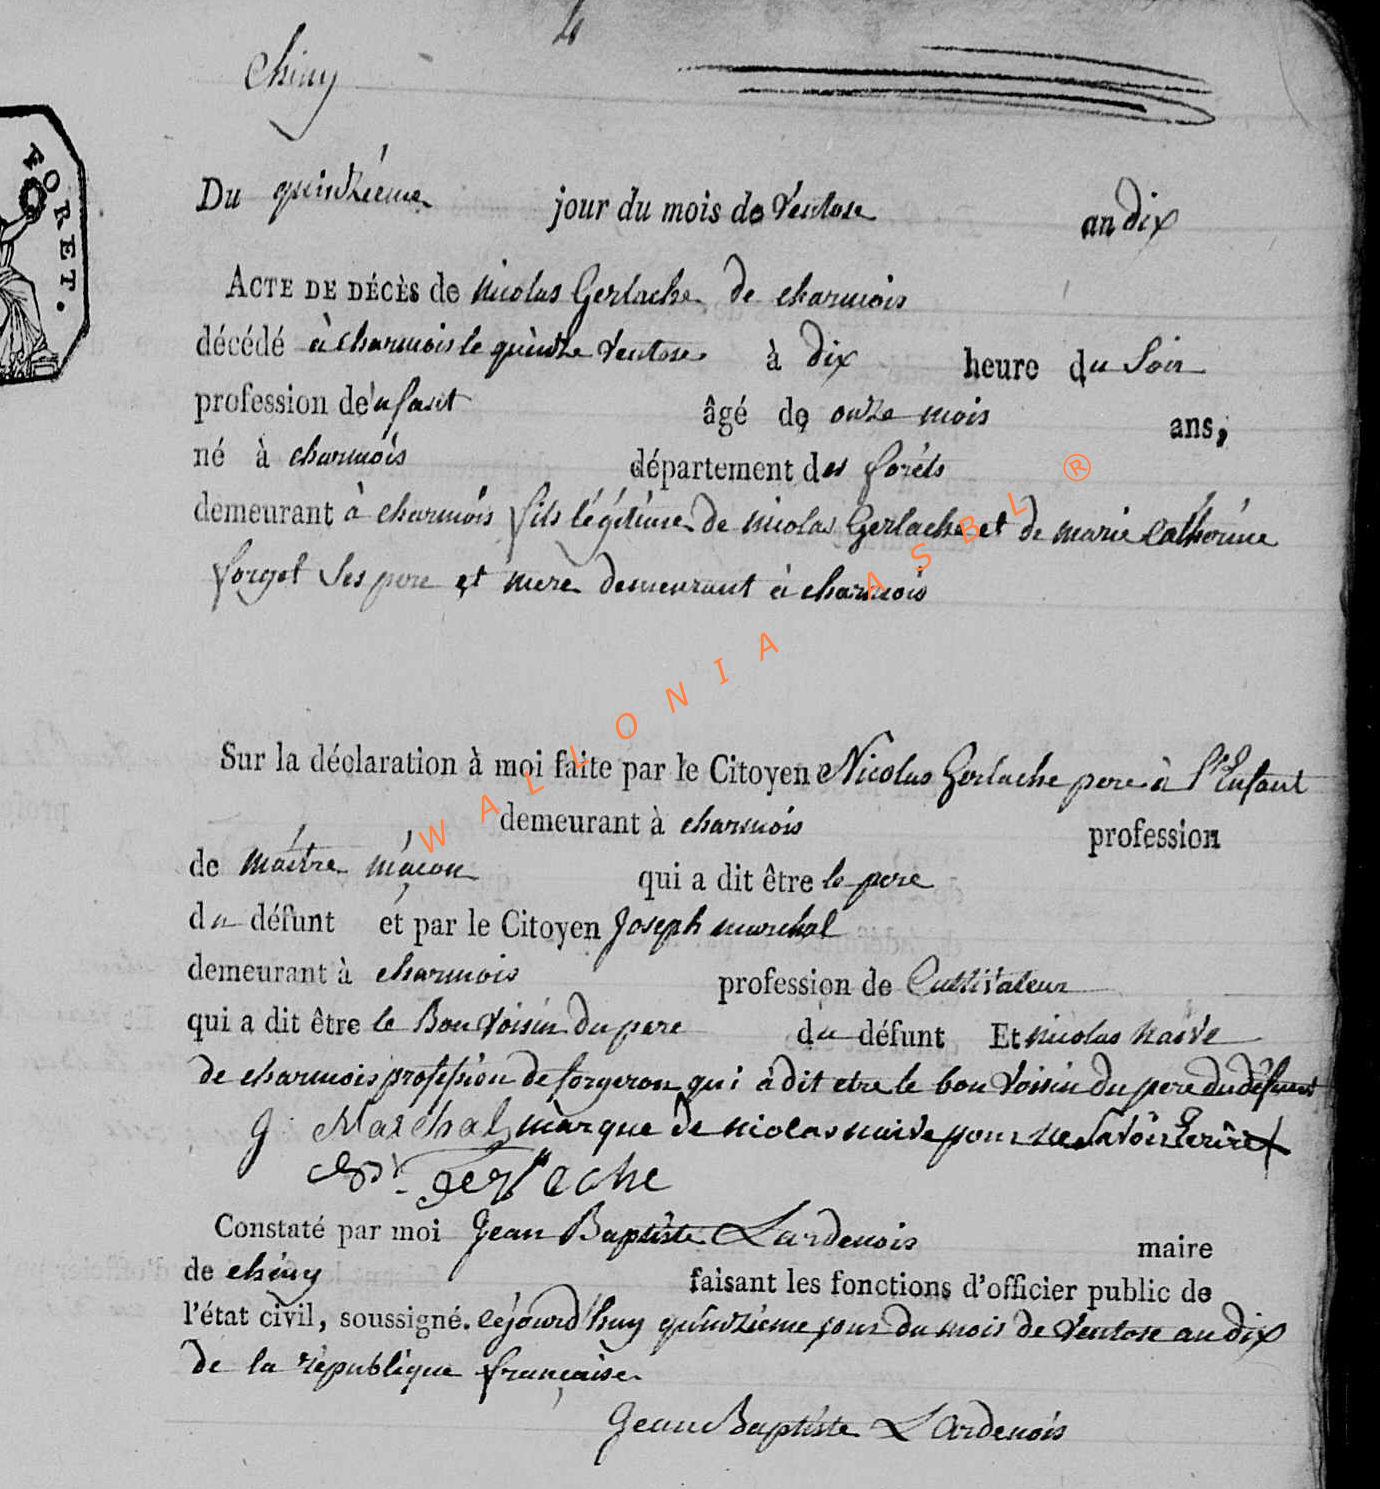 4
Chiny
FORET.
Du quinziéme jour du mois de Ventose an dix
ACTE DE DÉCÈS de nicolas Gerlache de charmois
décédé à charmois le quinze Ventose à dix heure du Soir
profession de enfant âgé de onze mois ans,
né à charmois département des forêts
demeurant à charmois fils légitime de nicolas Gerlache et de marie Catherine
forget Ses pere et mere demeurant à charmois
WALLONIA ASBL ®
Sur la déclaration à moi faite par le Citoyen Nicolas Gerlache pere à l'Enfant
demeurant à charmois profession
de maitre maçon qui a dit être le pere
du défunt et par le Citoyen Joseph marchal
demeurant à charmois profession de Cultivateur
qui a dit être le Bon Voisin du pere du défunt Et nicolas naive
de charmois profession de forgeron qui à dit etre le bon Voisin du pere du défunt
g Marchal marque de nicolas naive pour ne Savoir Ecrire
Gerlache
Constaté par moi Jean Baptiste Lardenois maire
de chiny faisant les fonctions d'officier public de
l'état civil, soussigné. cejourd'huy quinzieme jour du mois de Ventose an dix
de la republique française
Jean Baptiste Lardenois